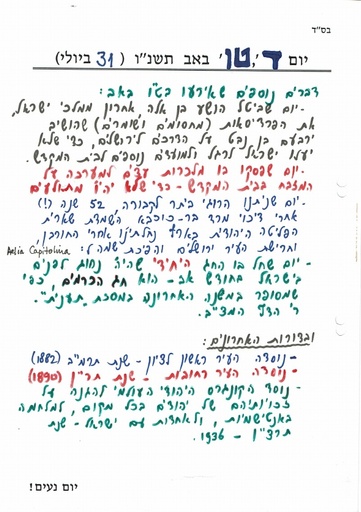 בס"ד
יום ד', טו' באב תשנ"ו (31 ביולי)
דברים נוספים שאירעו בט"ו באב:
- יום שביטל הושע בן אלה אחרון ממלכי ישראל,
את הפרדיסאות (מחסומים ושומרים) שהושיב
ירבעם בן נבט על הדרכים לירושלים, כדי שלא
יעלו ישראל לרגל ולמועדים נוספים לבית המקדש.
- יום שפסקו בו מלכרות עצים למערכה על
המזבח בבית המקדש - כדי שלא יהיו מתולעים
- יום שניתנו הרוגי ביתר לקבורה, 52 שנה (!)
אחרי דיכוי מרד בר-כוכבא השמדת שארית
הפליטה היהודית בארץ נחלתינו אחרי החורבן,
וחרישת העיר ירושלים והפיכת שמה ל: Aelia Capitolina
- יום שחל בו החג היחידי שהיה נהוג לפנים
בישראל בחודש אב - הוא חג הכרמים, כפי
שמסופר במשנה האחרונה במסכת תענית".
ובדורות האחרונים:
- נוסדה העיר ראשון לציון - שנת תרמ"ב (1882)
- נוסדה העיר רחובות - שנת תר"ן (1890)
- נוסד הקונגרס היהודי העולמי להגנה על
זכויותיהם של יהודים בכל מקום, למלחמה
באנטישמיות, ולאחדות עם ישראל - שנת
תרצ"ו - 1936.
יום נעים!